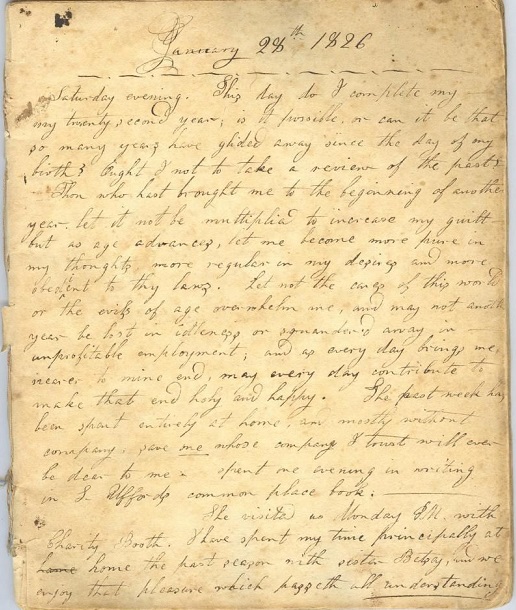 January 28th 1826
Saturday evening. This day do I complete my
my twenty second year; is it possible, or can it be that
so many years have glided away since the day of my
birth? Ought I not to take a review of the past?
Thou who hast brought me to the beginning of another
year. let it not be multiplied to increase my guilt
but as age advances, let me become more pure in
my thoughts more regular in my desires and more
obedient to thy laws. Let not the cares of this world
or the evils of age overwhelm me, and may not another
year be lost in idleness or squandered away in
unprofitable employment; and as every day brings me
nearer to mine end, may every day contribute to
make that end holy and happy. The past week has
been spent entirely at home, and mostly without
company, save one whose company I trust will ever
be dear to me - spent one evening in writing
in L Uffords common place book.
She visited us Monday P.M. with
Charity Booth. I have spent my time principally at
home home the past season with sister Betsey, and we
enjoy that pleasure which passeth all understanding